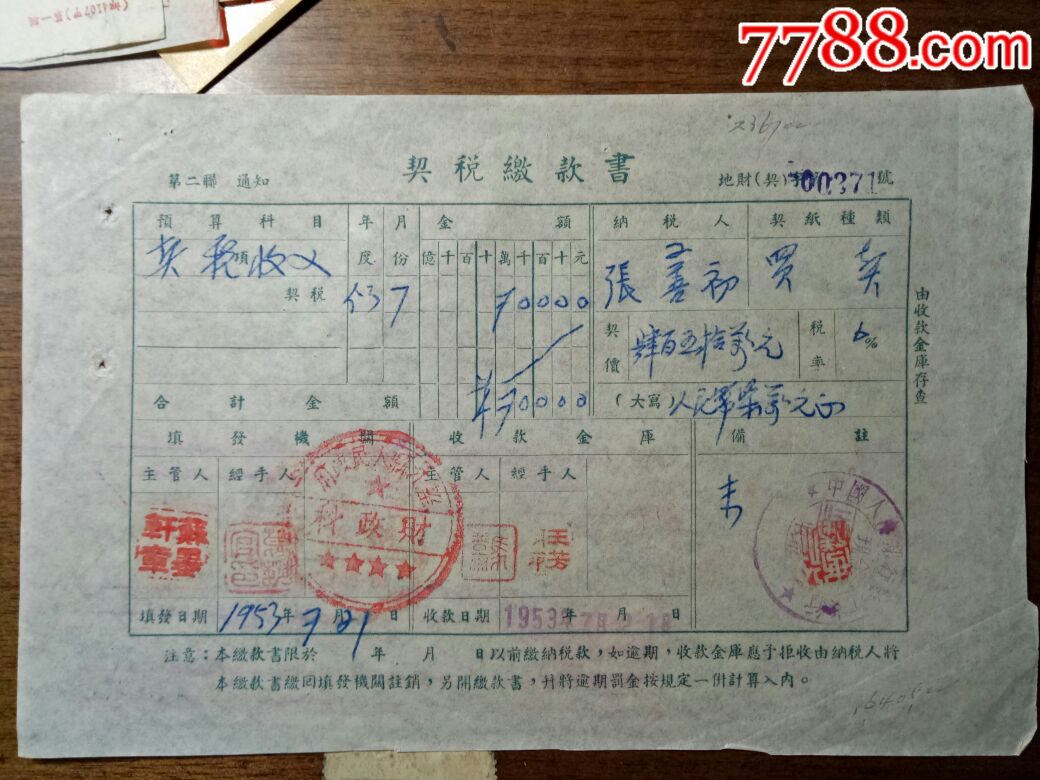 (縣4107甲)第一聯
7788.com
契稅繳款書
第二聯 通知
地財(契)字第00371號
預算科目 年度 月份 金額 納稅人 契紙種類
億千百十萬千百十元
契稅收入 項
契稅
53 7
70000
張善初 買契
契價 肆百五拾萬元 稅率 6%
合計金額 ¥70000 (大寫 人民幣柒萬元正
由收款金庫存查
填發機關 收款金庫 備註
主管人 經手人 主管人 經手人
財政科
王芳
中國人
填發日期 1953年7月21日 收款日期 1953年 月 日
注意:本繳款書限於 年 月 日以前繳納稅款,如逾期,收款金庫應予拒收由納稅人將
本繳款書繳回填發機關註銷,另開繳款書,并將逾期罰金按規定一併計算入內。